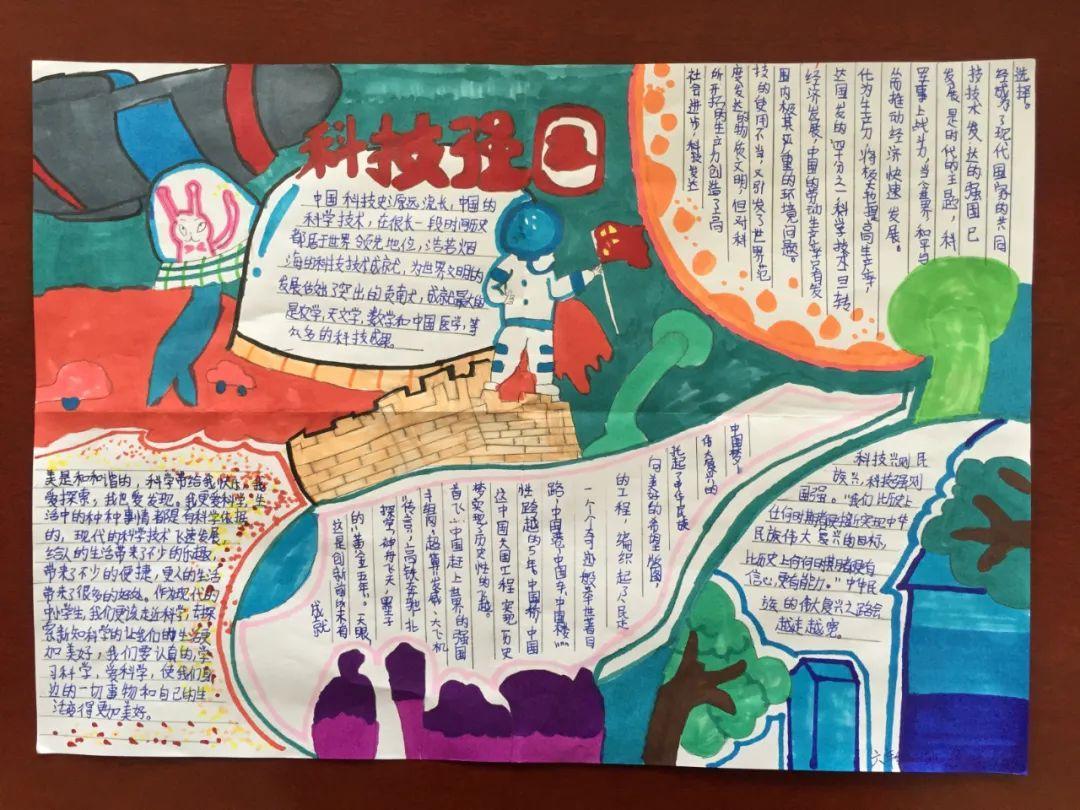 科技强国
中国科技史源远流长,中国的
科学技术,在很长一段时间历史
都居于世界领先地位,浩若烟
海的科技技术成就,为世界文明的
发展做出了突出的贡献,成就最大的
是农学,天文学,数学和中国医学,等
众多的科技成果。
社会进步,科技发达
所开拓的生产力创造了高
度发达的物质文明,但对科
技的使用不当,又引发了世界范
围内极其严重的环境问题。
经济发展,中国的劳动生产率只有发
达国家的四十分之一,科学技术一旦转
化为生产力,将极大地提高生产率
从而推动经济快速发展。
军事上战斗力,当今世界和平与
发展是时代的主题,科
技技术发达的强国已
经成为了现代国家的共同
选择。
美是和和谐的,科学带给我快乐,我
爱探索,我也爱发现。我更爱科学,生
活中的种种事情都是有科学依据
的,现代的科学技术飞速发展,
给人的生活带来了不少的乐趣,
带来了不少的便捷,更人的生活
带来了很多的好处。作为现代的
中小学生,我们更该走近科学,去探
索新知,科学的让我们的生活更
加美好,我们要认真的,学
习科学,爱科学,使我们身
边的一切事物和自己的生
活变得更加美好。
成就
这是创新前所未有
的“黄金五年”。“天眼
探空,神舟飞天,“墨子
“传言,”高铁奔驰,北
斗组网,超算发威,大飞机
首飞……中国赶上世界的强国
梦实现了历史性的飞越。
这中国大国工程,实现历史
性跨越的5年,中国桥,中国
路,中国港,中国车,中国楼……
一个个奇迹般举世着目
的工程,编织起了人民走
向美好的希望版图,
托起了中华民族
伟大复兴的
中国梦。
科技兴则民
族兴,科技强则
国强。“我们比历史上
任何时期都更接近实现中华
民族伟大复兴的目标,
比历史上任何时期都更有
信心,更有能力。”中华民
族的伟大复兴之路会
越走越宽。